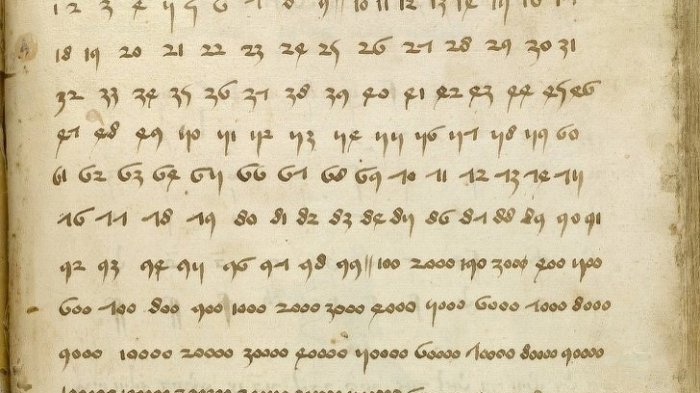 1 2 3 4 5 6 7 8 9 10 11 12 13 14 15 16 17
18 19 20 21 22 23 24 25 26 27 28 29 30 31
32 33 34 35 36 37 38 39 40 41 42 43 44 45 46
47 48 49 50 51 52 53 54 55 56 57 58 59 60
61 62 63 64 65 66 67 68 69 70 71 72 73 74 75
76 77 78 79 80 81 82 83 84 85 86 87 88 89 90 91
92 93 94 95 96 97 98 99 100 2000 190 3000 400 500
600 700 800 900 1000 2000 3000 4000 5000 6000 7000 8000
9000 10000 20000 30000 40000 50000 60000 70000 80000 90000